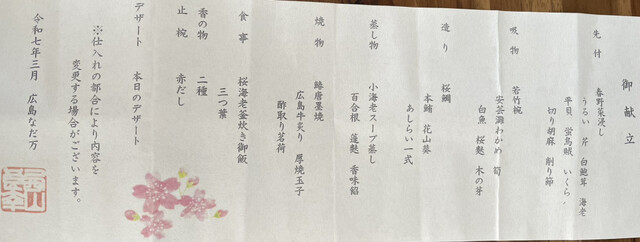 御献立
先付
春野菜浸し
うるい 芹 白鮑茸 海老
平貝 蛍烏賊 いくら
切り胡麻 削り節
吸物
若竹椀
安芸灘わかめ 筍
白魚 桜麩 木の芽
造り
桜鯛
本鮪 花山葵
あしらい一式
蒸し物
小海老スープ蒸し
百合根 蓬麩 香味餡
焼物
鰆唐墨焼
広島牛炙り 厚焼玉子
酢取り茗荷
食事
桜海老釜炊き御飯
三つ葉
香の物
二種
止椀
赤だし
デザート
本日のデザート
※仕入れの都合により内容を
変更する場合がございます。
令和七年三月 広島なだ万